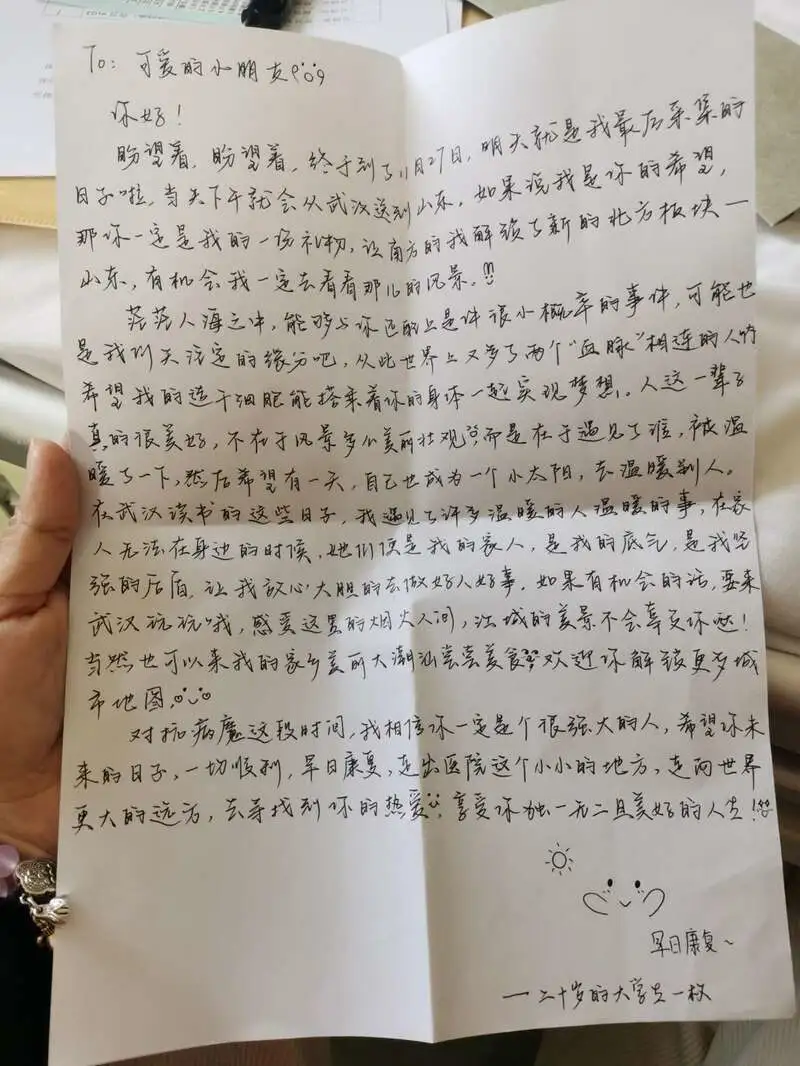 To: 可爱的小朋友
你好！
盼望着，盼望着，终于到了11月27日，明天就是我最后采集的
日子啦，当天下午就会从武汉送到山东，如果说我是你的希望，
那你一定是我的一份礼物，让南方的我解锁了新的北方板块—
山东，有机会我一定去看看那儿的风景。
茫茫人海之中，能够与你匹配上是件很小概率的事件，可能也
是我们天注定的缘分吧，从此世界上又多了两个“血脉”相连的人
希望我的造干细胞能搭乘着你的身体一起实现梦想。人这一辈子
真的很美好，不在于风景多么美丽壮观，而是在于遇见了谁，被温
暖了一下，然后希望有一天，自己也成为一个小太阳，去温暖别人。
在武汉读书的这些日子，我遇见了许多温暖的人温暖的事，在家
人无法在身边的时候，她们便是我的家人，是我的底气，是我坚
强的后盾，让我放心大胆的去做好人好事，如果有机会的话，要来
武汉玩玩哦，感受这里的烟火人间，江城的美景不会辜负你哒！
当然也可以来我的家乡美丽大潮汕尝尝美食，欢迎你解锁更多城
市地图。
对抗病魔这段时间，我相信你一定是个很强大的人，希望你未
来的日子，一切顺利，早日康复，走出医院这个小小的地方，走向世界
更大的远方，去寻找到你的热爱，享受你独一无二且美好的人生！
早日康复～
—二十岁的大学生一枚